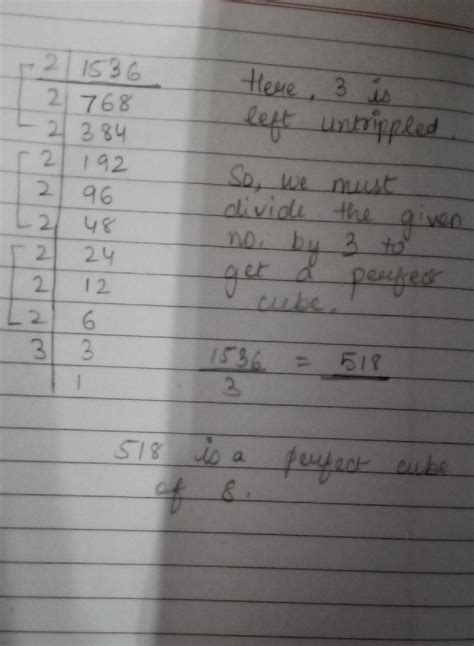 2 | 1536
2 | 768
2 | 384
2 | 192
2 | 96
2 | 48
2 | 24
2 | 12
2 | 6
3 | 3
| 1
Here, 3 is
left untrippled.
So, we must
divide the given
no. by 3 to
get a perfect
cube.
1536 = 518
3
518 is a perfect cube
of 8.